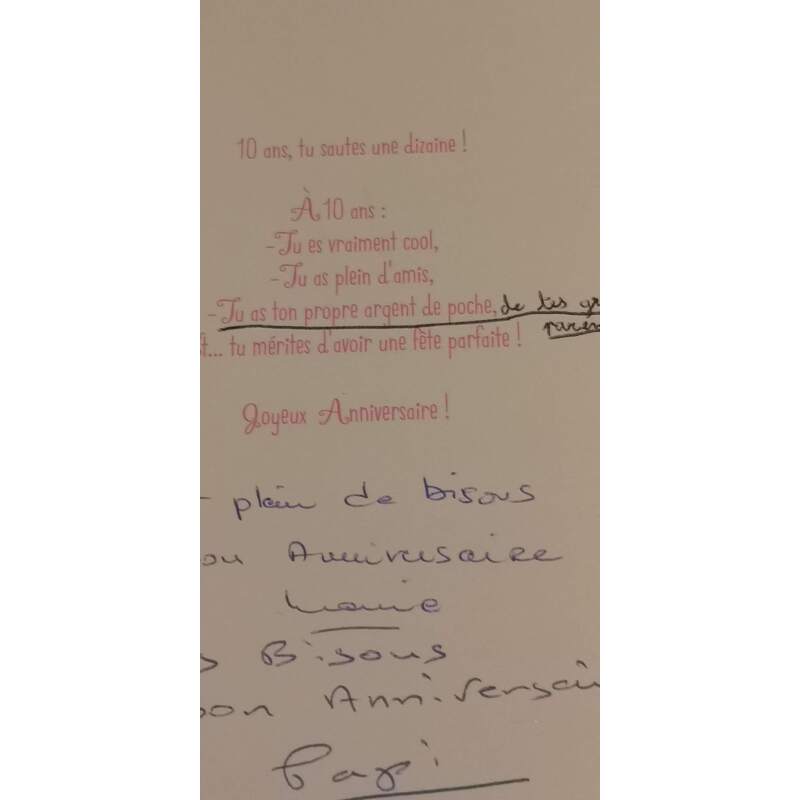 10 ans, tu sautes une dizaine !
À 10 ans :
-Tu es vraiment cool,
-Tu as plein d'amis,
-Tu as ton propre argent de poche, de tes gr
paren
t... tu mérites d'avoir une fête parfaite !
Joyeux Anniversaire !
- plein de bisous
ou Anniversaire
Mamie
s Bisous
bon Anniversai
Papi